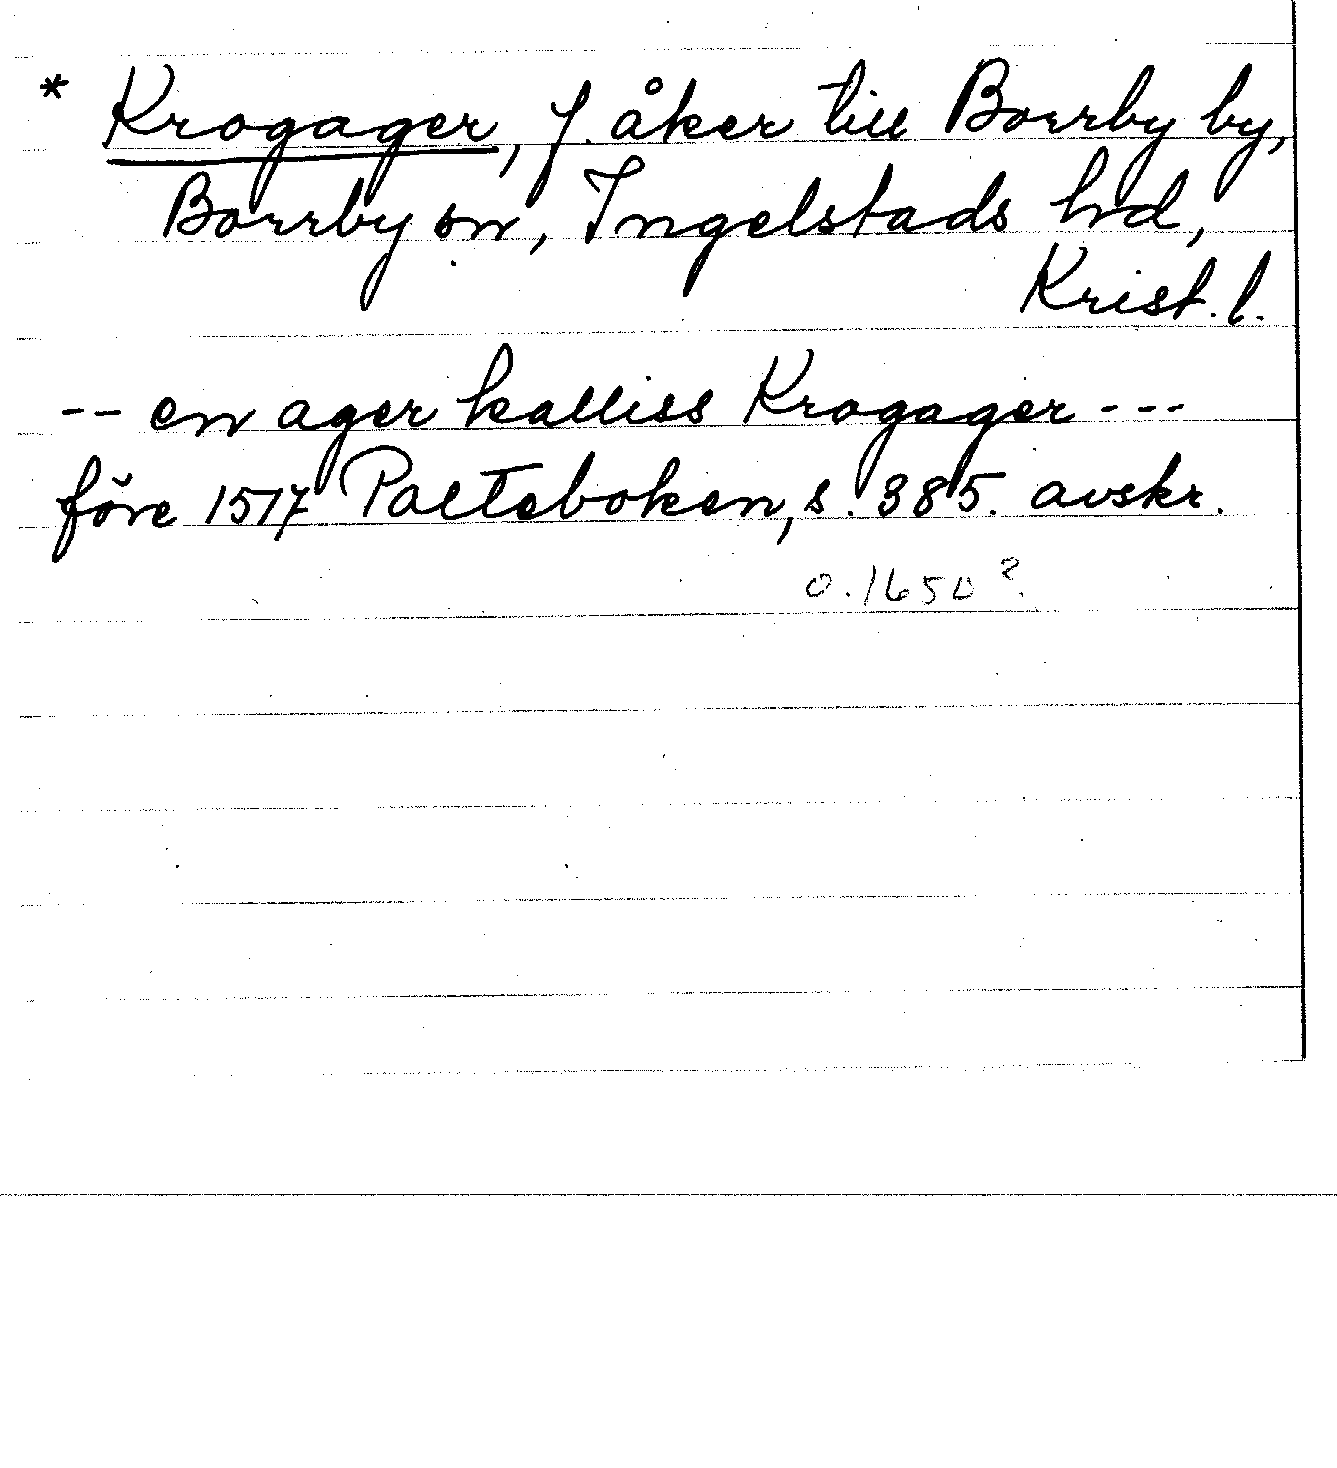 * Krogager, f. åker till Borrby by,
Borrby sn, Ingelstads hrd,
Krist. l.
-- en ager kalliss Krogager ---
före 1517 Palteboken, s. 385. avskr.
o. 1650?